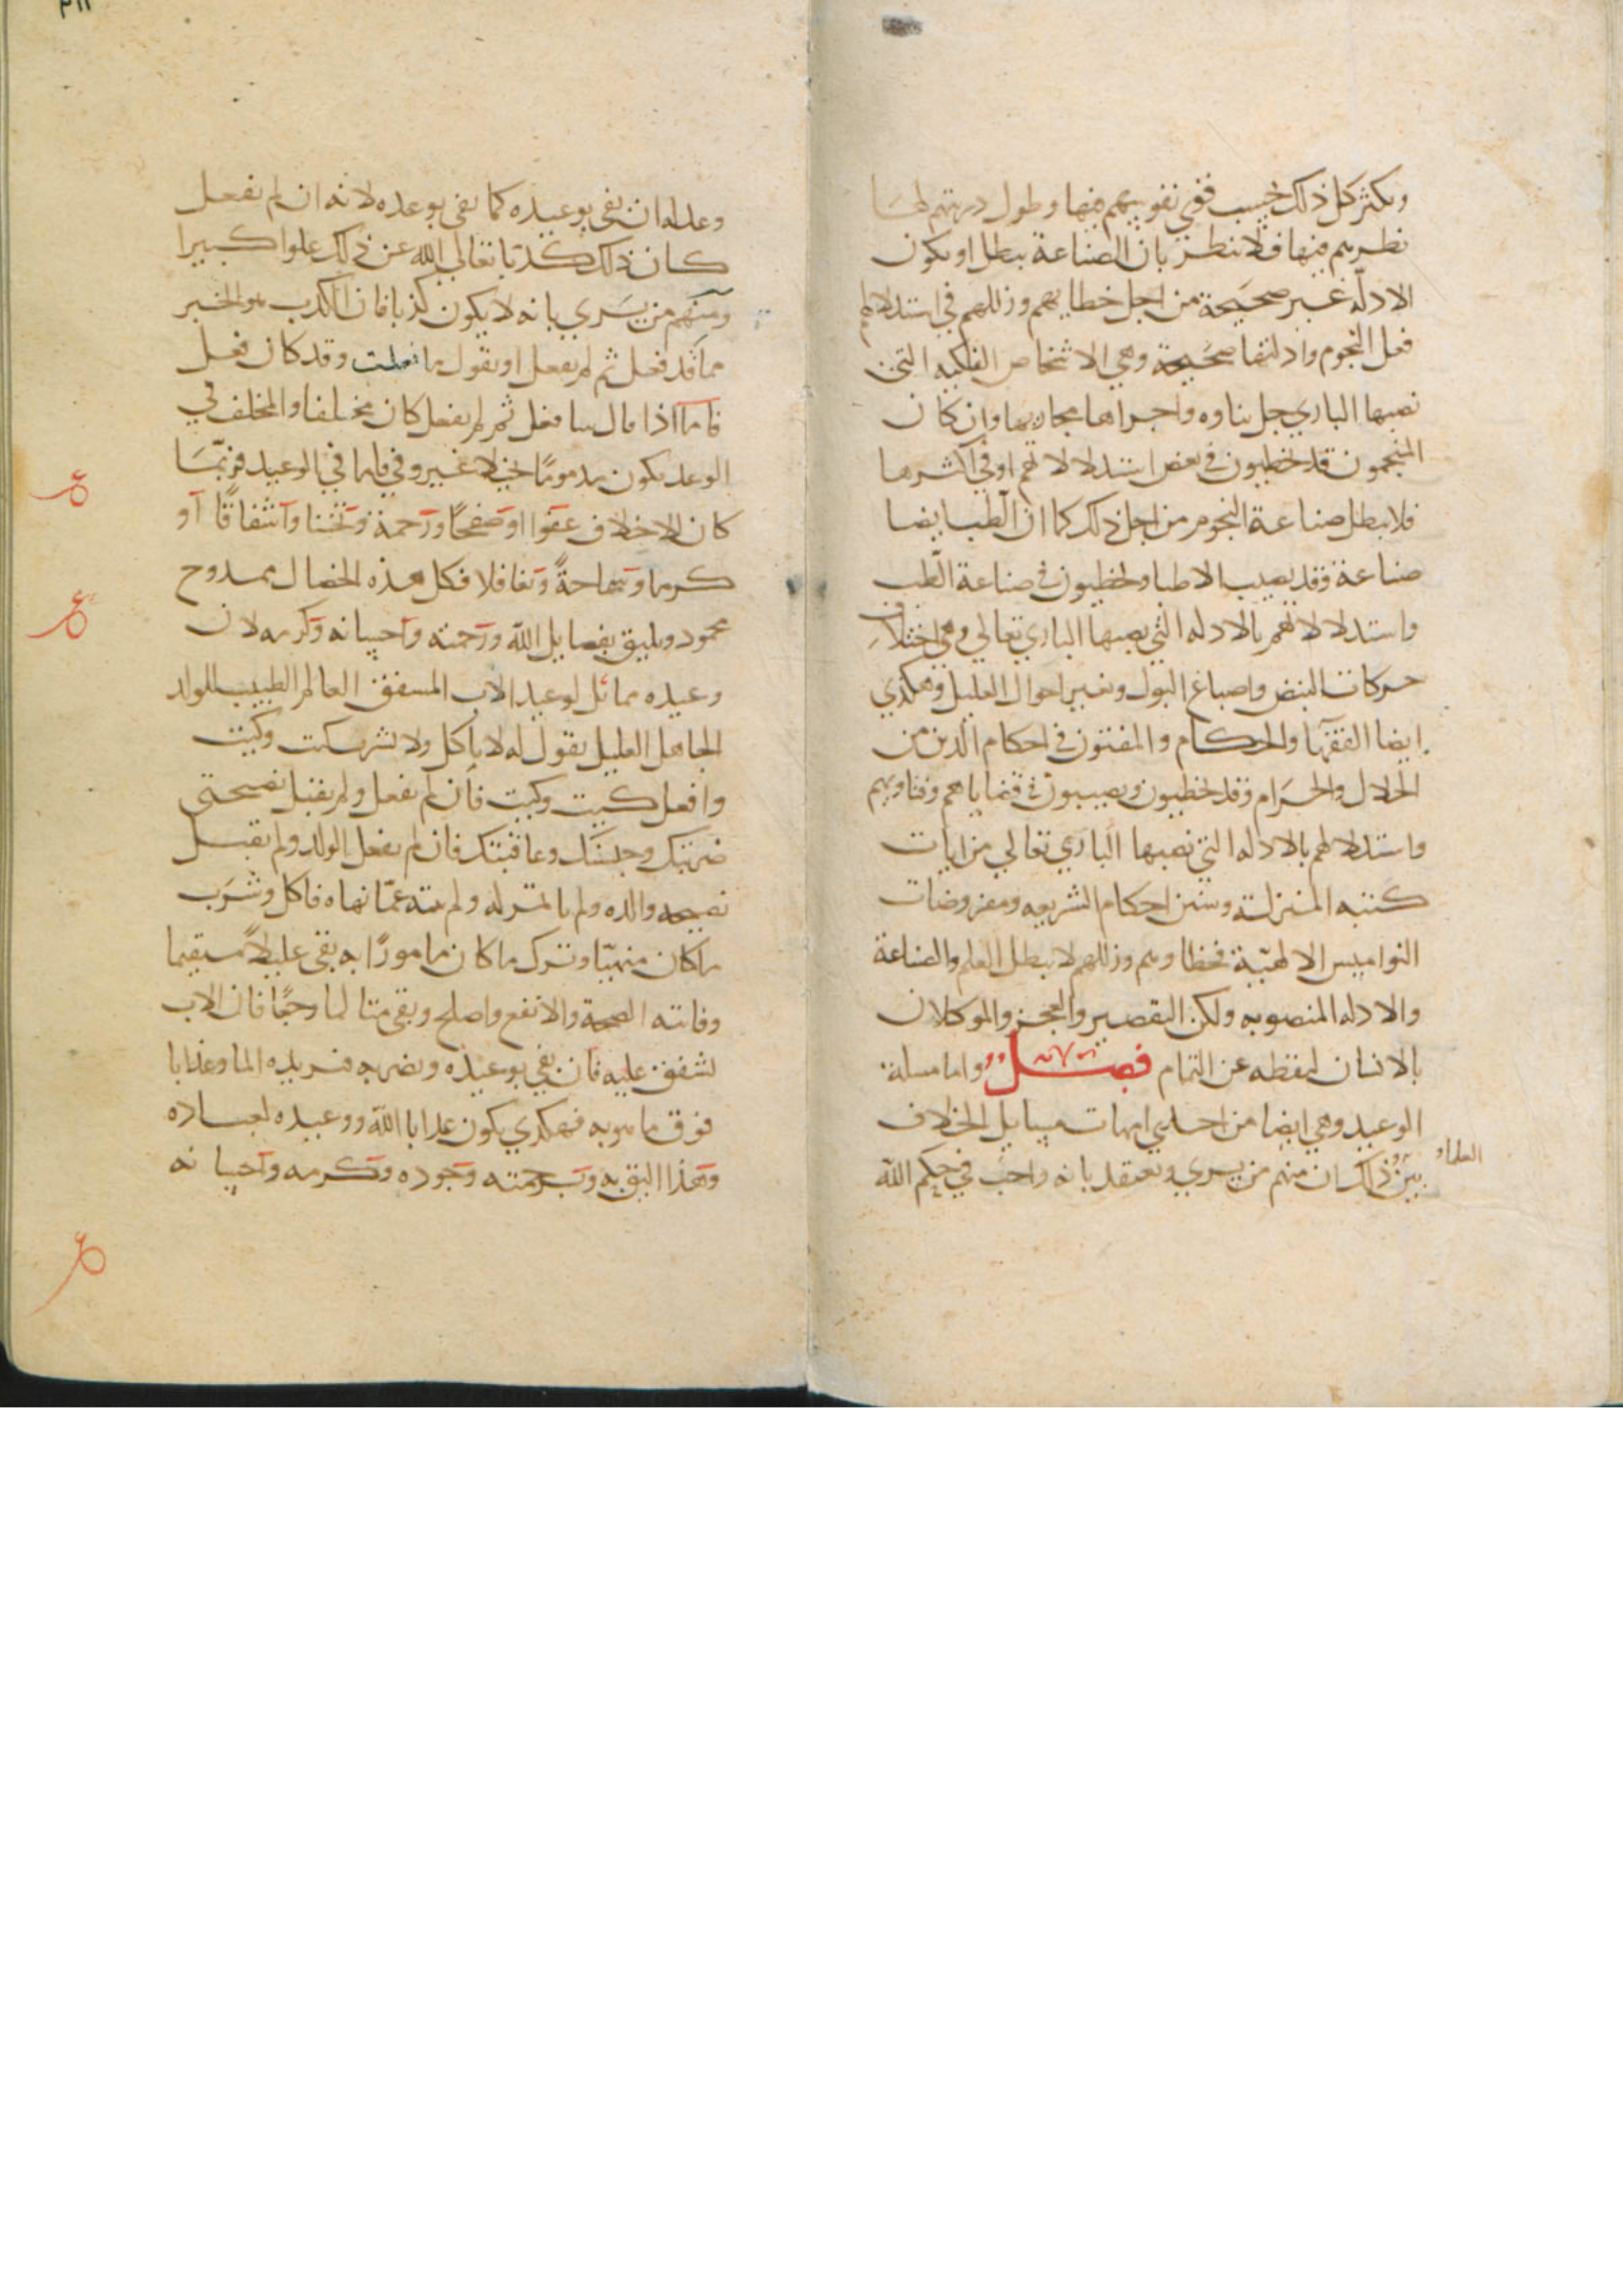 ويكثر كل ذلك بحسب قوي نفوسهم فيها وطول دربتهم لها
نظرهم فيها فلا تظن بان الصناعة تبطل او يكون
الادلة غير صحيحة من اجل خطايهم وزللهم في استدلالهم
فعل النجوم وادلتها صحيحة وهي الاشخاص الفلكيه التي
نصبها الباري جل ثناوه واجراها مجاريها وان كان
المنجمون قد يخطيون في بعض استدلالاتهم او في اكثرها
فلا يبطل صناعة النجوم من اجل ذلك كما ان الطب ايضا
صناعة وقد يصيب الاطبا ويخطيون في صناعة الطب
واستدلالاتهم بالادله التي نصبها الباري تعالي وهي اختلاف
حركات النبض واصباغ البول وتغير احوال العليل وهكذي
ايضا الفقها والحكام والمفتون في احكام الدين من
الحلال والحرام وقد يخطيون ويصيبون في قضاياهم وفتاويهم
واستدلالهم بالادله التي نصبها الباري تعالي من ايات
كتبه المنزلة وسنن احكام الشريعه ومفروضات
النواميس الالهية فخطاوهم وزللهم لا يبطل العلم والصناعة
والادله المنصوبه ولكن التقصير والعجز والموكلان
بالانسان ليقطه عن التمام فصل واما مسلة
الوعيد وهي ايضا من احدي امهات مسايل الخلاف
بين العلما وذاك ان منهم من يري ويعتقد بانه واجب في حكم الله
وعدله ان يفي بوعيده كما يفي بوعده لانه ان لم يفعل
كان ذلك كذبا تعالي الله عن ذلك علوا كبيرا
ومنهم من يري بانه لا يكون كذبا فان الكذب هو الخبر
مما قد فعل ثم لم يفعل او يقول ما فعلت وقد كان فعل
فاما اذا قال سافعل ثم لم يفعل كان مخلفا والمخلف في
الوعد يكون مذموما في لا غير وفي فاما في الوعيد فربما
كان الاخلاف عفوا او صفحا ورحمة وتحننا واشفاقا او
كرما وسماحة وتغافلا فكل هذه الخصال ممدوح
محمود ويليق بفضايل الله ورحمته واحسانه وكرمه لان
وعيده مماثل لوعيد الاب المشفق العالم الطبيب للولد
الجاهل العليل يقول له لا تاكل ولا تشرب كيت وكيت
وافعل كيت وكيت فان لم تفعل ولم تقبل نصيحتي
ضربتك وحبستك وعاقبتك فان لم يفعل الولد ولم يقبل
نصيحه والده ولم ياتمر له ولم ينته عما نهاه فاكل وشرب
ما كان منهيا وترك ما كان مامورا به بقي عليلا سقيما
وفاتته الصحة والانفع واصلح وبقي متالما وجعا فان الاب
يشفق عليه فان يفي بوعيده ويضربه فيزيده الما وعذابا
فوق ما هو به فهكذي يكون عذاب الله ووعيده لعباده
وهذا اليق به وبرحمته وجوده وكرمه واحسانه